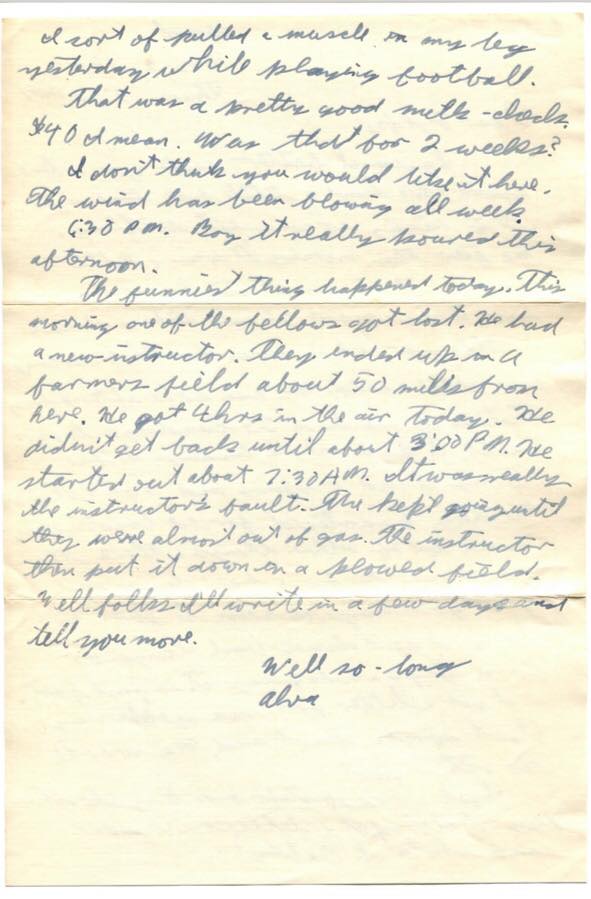 I sort of pulled a muscle in my leg
yesterday while playing football.
That was a pretty good milk-check.
$40 I mean. Was that for 2 weeks?
I don't think you would like it here.
The wind has been blowing all week.
6:30 P.M. Boy it really poured this
afternoon.
The funniest thing happened today. This
morning one of the fellows got lost. He had
a new instructor. They ended up in a
farmers field about 50 miles from
here. He got 4 hrs in the air today. He
didn't get back until about 3:00 P.M. He
started out about 7:30 A.M. It was really
the instructor's fault. The kept going until
they were almost out of gas. The instructor
then put it down in a plowed field.
Well folks I'll write in a few days and
tell you more.
Well so-long
Alva